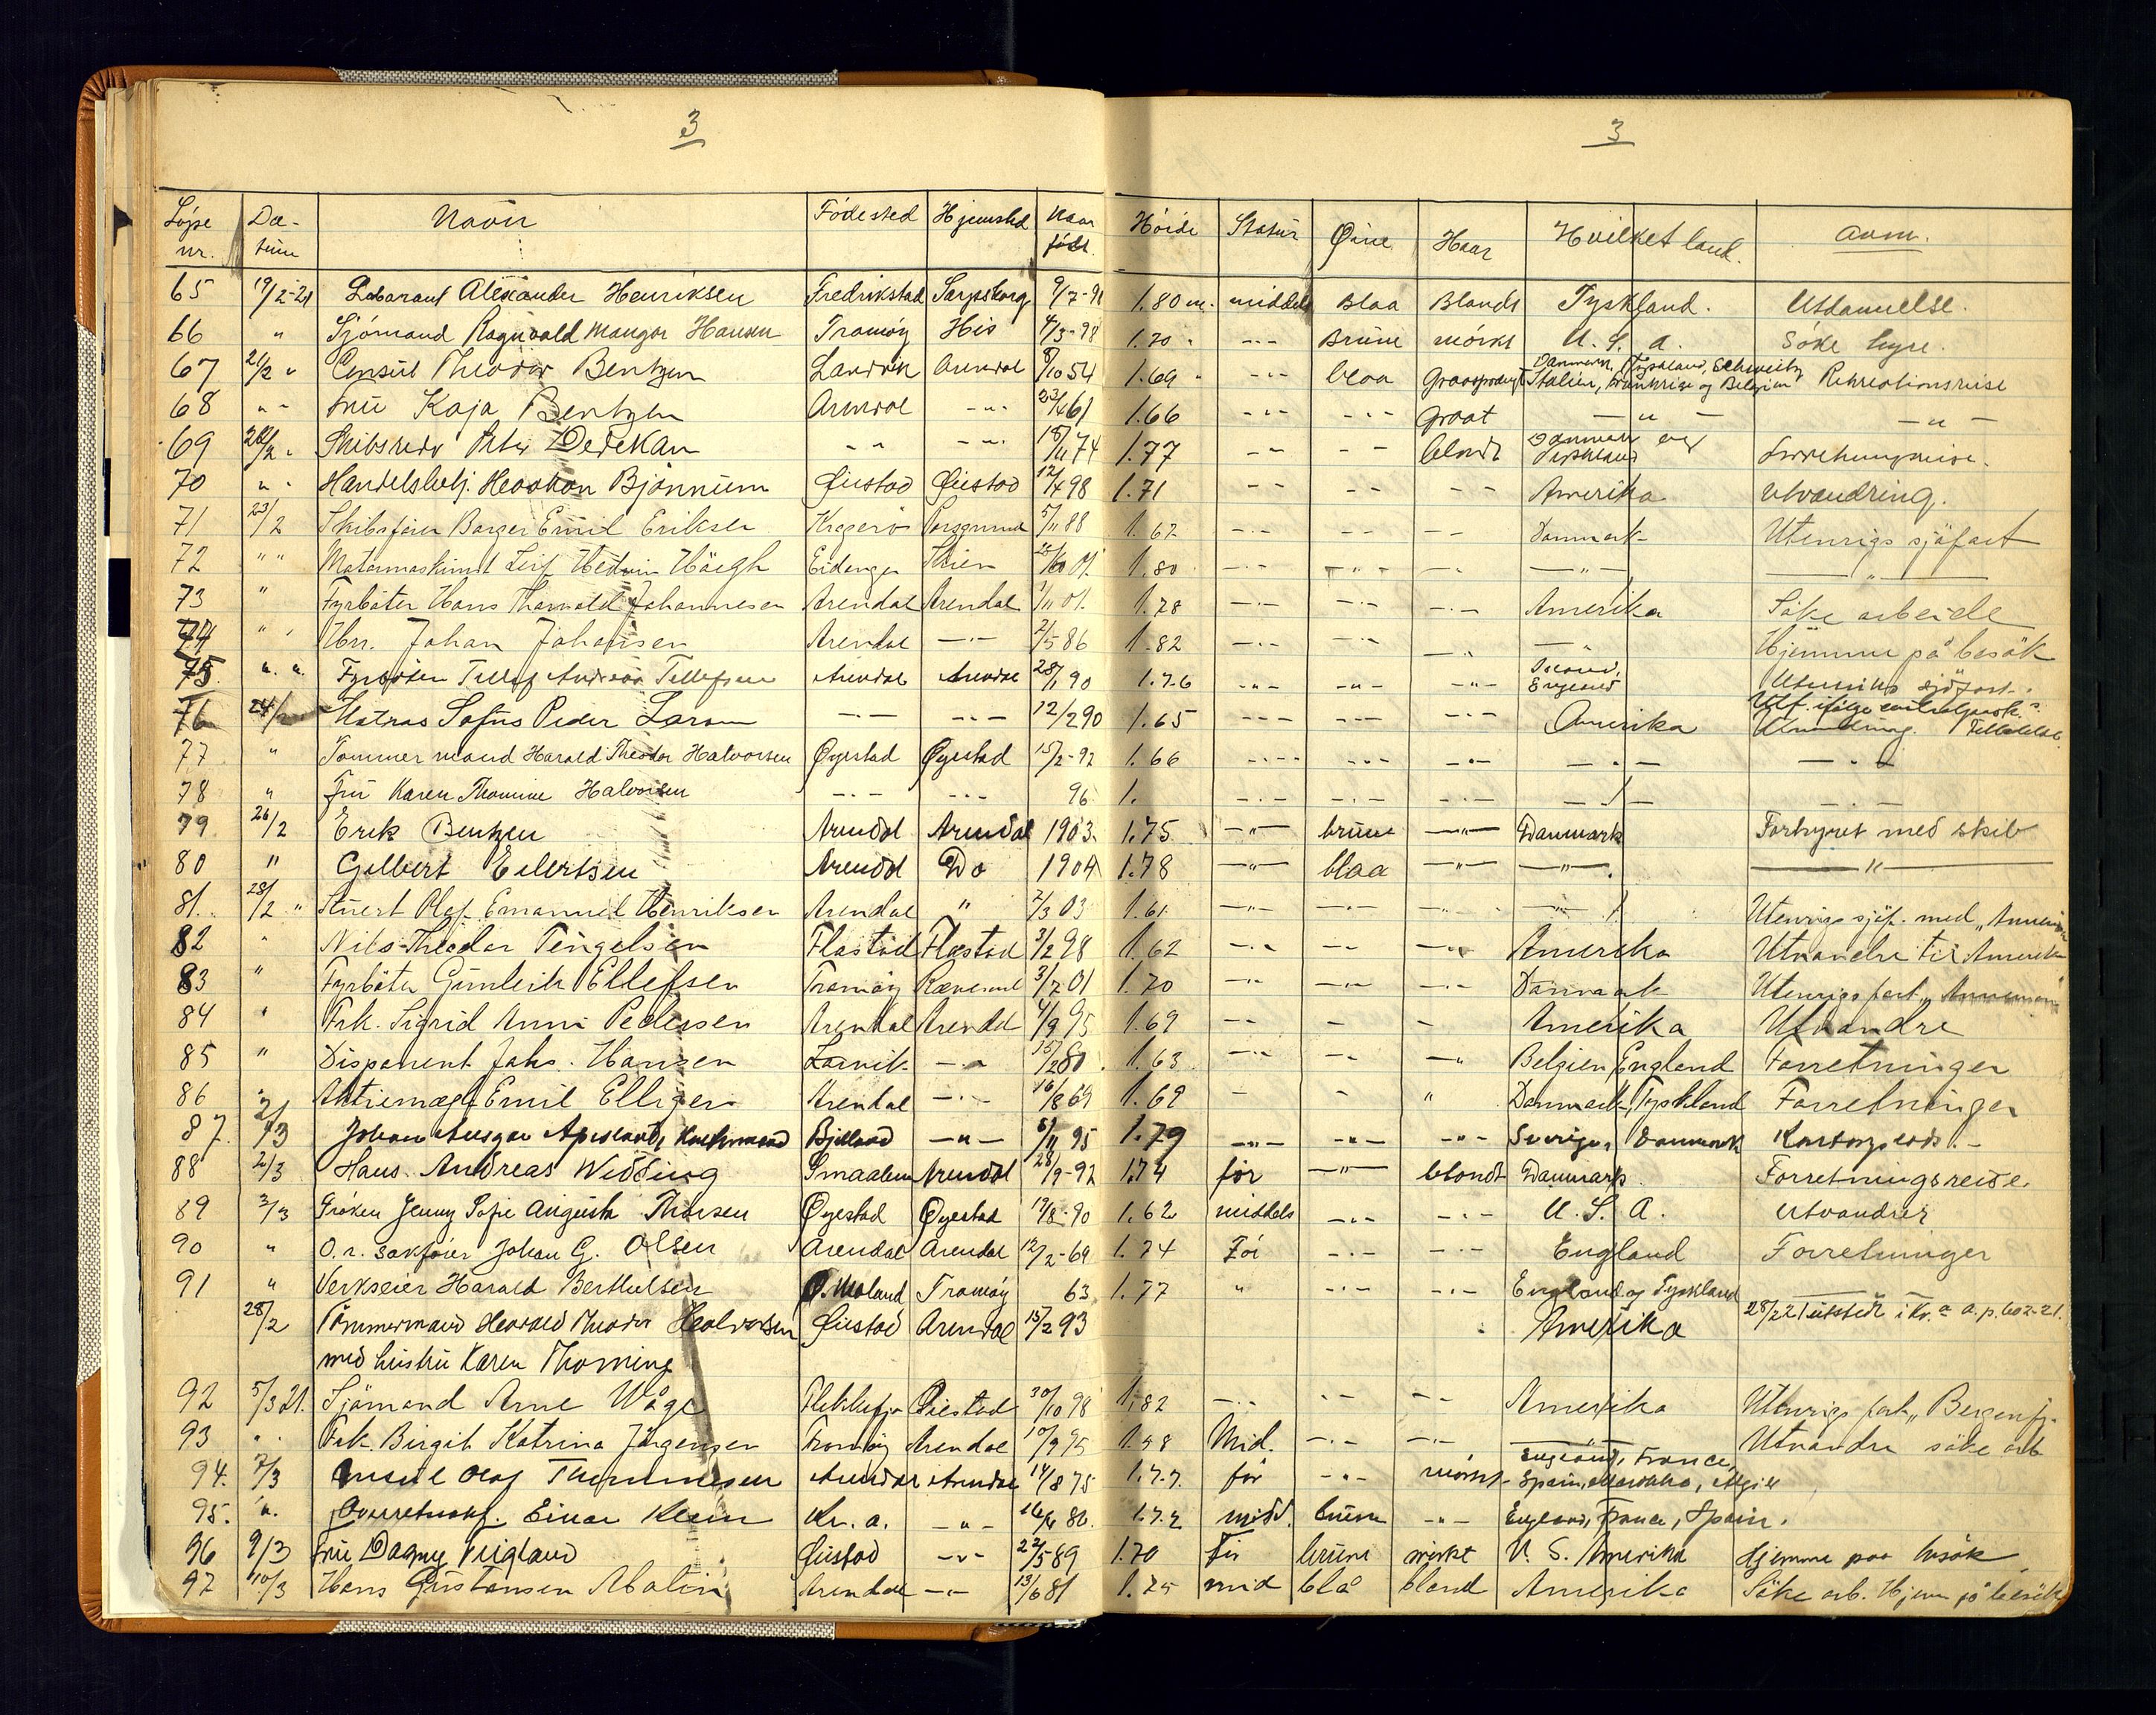 3
3
Löpe nr. Da-tum Navn Födested Hjemsted Naar födt. Höide Statur Øine Haar Hvilket land. Anm.
65 19/2-21 Alexander Henriksen Fredrikstad Sarpsborg 9/7-9 1.80 m. middels Blaa Blondt Tyskland. Utdannelse.
66 " Sjömand Ragnvald Mangor Hansen Tromöy His 4/3-98 1.70 " -"- Brune mörkt U. S. A. Söke hyre.
67 21/2 " Consul Theodor Bentzen Landvik Arendal 8/10 54 1.69 " -"- blaa Graasprængt Danmark, Tyskland, Schweitz, Italien, Frankrige og Belgien Rekreationsreise
68 " - Fru Kaja Bentzen Arendal -"- 23/4 61 1.66 -"- -"- graat — " — — " —
69 22/2 " Skibsreder Peter Dedekam - " -"- 15/11 74 1.77 -"- - - blondt Danmark og Tyskland Forretningsreise.
70 " " Handelsbetj. Haakon Bjönnum Øiestad Øiestad 12/4 98 1.71 -- -- -- Amerika utvandring.
71 23/2 Skibsförer Borger Emil Eriksen Kragerö Porsgrund 5/11 88 1.62 -- -- -- Danmark Utenrigs sjöfart
72 " " Motormaskinist Leif Hedvin Höegh Eidanger Skien 01. 1.80 -"- -"- -- — " — — " —
73 " Fyrböter Hans Thorvald Johannesen Arendal Arendal 1/11 01. 1.78 -"- -"- -"- Amerika Söke arbeide
74 " " Hr. Johan Johansen Arendal -"- 2/5 86 1.82 -"- -"- -"- — " — Hjemme på besök
75 ". ". Fyrböter Tellef Andreas Tellefsen Arendal Arendal 28/1 90 1.76 -"- -"- -"- England Utenriks sjöfart.
76 24/2 Matros Sofus Peder Larsen -"- -"- 12/2 90 1.65 -"- -"- -"- Amerika Utvandring.
77 " Tömmermand Harald Theodor Halvorsen Øyestad Øyestad 15/2-92 1.66 -"- -"- -"- — " — — " —
78 " Fru Karen Thomine Halvorsen -"- -"- 96 1. -"- -"- -"- — " — -"-
79 26/2 Erik Bentzen Arendal Arendal 1903. 1.75 -"- brune -"- Danmark Forhyret med skib
80 " Gilbert Eilertsen Arendal Do 1904 1.78 -"- blaa -"- -"- — " —
81. 28/2 " Stuert Olaf Emanuel Henriksen Arendal " 7/3 03 1.61 -"- -"- -"- -"- Utenrigs sjöf. med
82 " Nils Theodor Tengelsen Flostad Flostad 3/2 98 1.62 -"- -"- -"- Amerika Utvandre til Amerika
83 " Fyrböter Gunleik Ellefsen Tromöy 3/7 01 1.70 -"- -- -"- Danmark Utenrigsfart
84 " Frk. Sigrid Anni Pedersen Arendal Arendal 4/9 95 1.69 -- - - Amerika Utvandre
85 " Disponent Johs. Hansen Larvik -"- 15/2 80 1.63 -"- -- -"- Belgien England Forretninger
86 " Aktiemægl. Emil Elligers Arendal -"- 16/8 69 1.69 - - " Danmark, Tyskland Forretninger
87. 2/3 Johan Ansgar Bjelland -"- 8/11 95 1.79 -"- -"- -"- Sverige, Danmark
88 2/3 Hans Andreas Widding Smaalen Arendal 28/9-92 1.74 før -"- blondt Danmark Forretningsreise.
89 3/3 Fröken Jenny Sofie Augusta Thorsen Øyestad Øyestad 19/8-90 1.62 middels -"- -"- U. S. A. Utvandrer
90 " O.r. sakförer Johan G. Olsen Arendal Arendal 12/2-69 1.74 För -"- -"- England Forretninger
91 " Verkseier Harald Berthelsen Ø. Moland Tromöy 63 1.77 " -"- -"- England og Tyskland — " —
28/2 Tömmermand Harald Theodor Halvorsen Øiestad Arendal 15/2 93 Amerika 28/2 21 utstedt i Kr.a a. p. 602-21.
med hustru Karen Thomine
92 5/3 21. Sjömand Arne Wåge Flekkefjo Øiestad 30/10 98 1,82 -"- -- -- Amerika Utenrigs fart „Bergensfj.
93 " " Frk. Birgit Katrina Jörgensen Tromöy Arendal 10/9 95 1.58 Mid. -"- -"- — " — Utvandre söke arb
94. 7/3 Consul Olaf Thommesen Arendal Arendal 14/8 75 1.77. før -"- mörkt England, France, Spain, Marokko, Algier
95. ". Overretssakf. Einar Klein Kr. a. -"- 80. 1.72 midd. brune -"- England, France, Spain.
96 9/3 Fru Dagny Vigland Øiestad -"- 22/5 89 1.70 Før brune mørkt U. S. Amerika Hjemme paa besøk
97 10/3 Hans Gustavsen Malin Arendal -"- 13/6 81 1.75 mid blå blond Amerika Söke arb. Hjem på besök